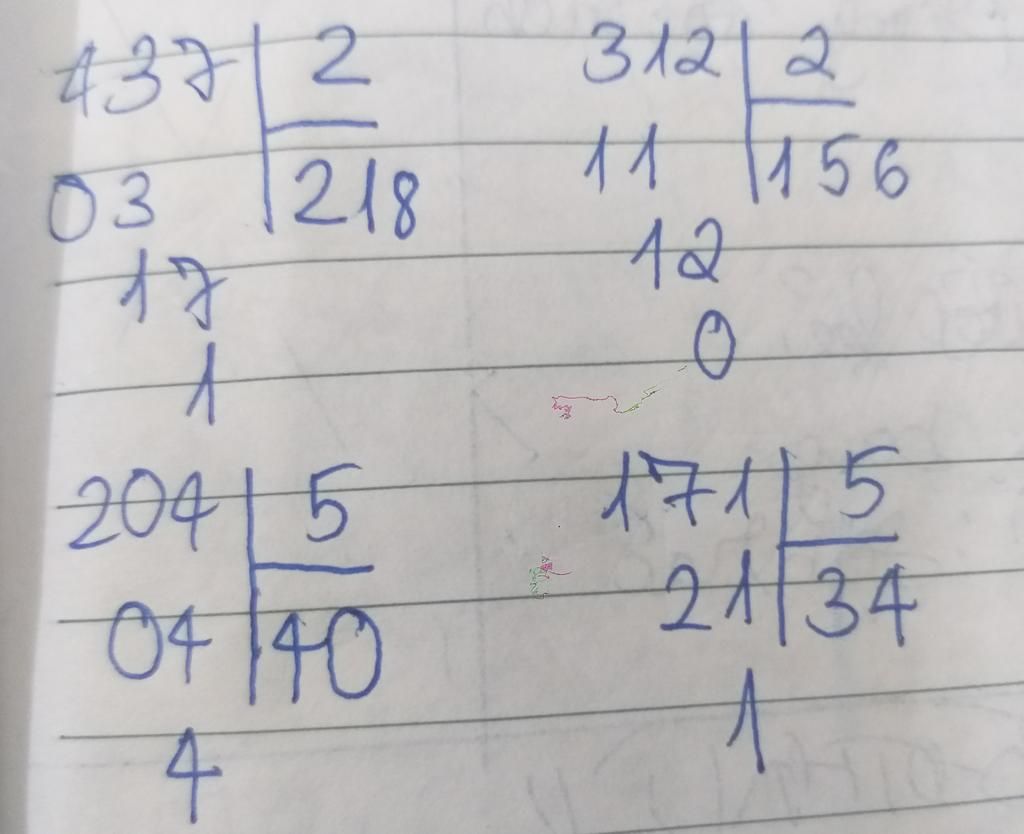 437 2 312 2
03 218 11 156
17 12
1 0
204 5 171 5
04 40 21 34
4 1